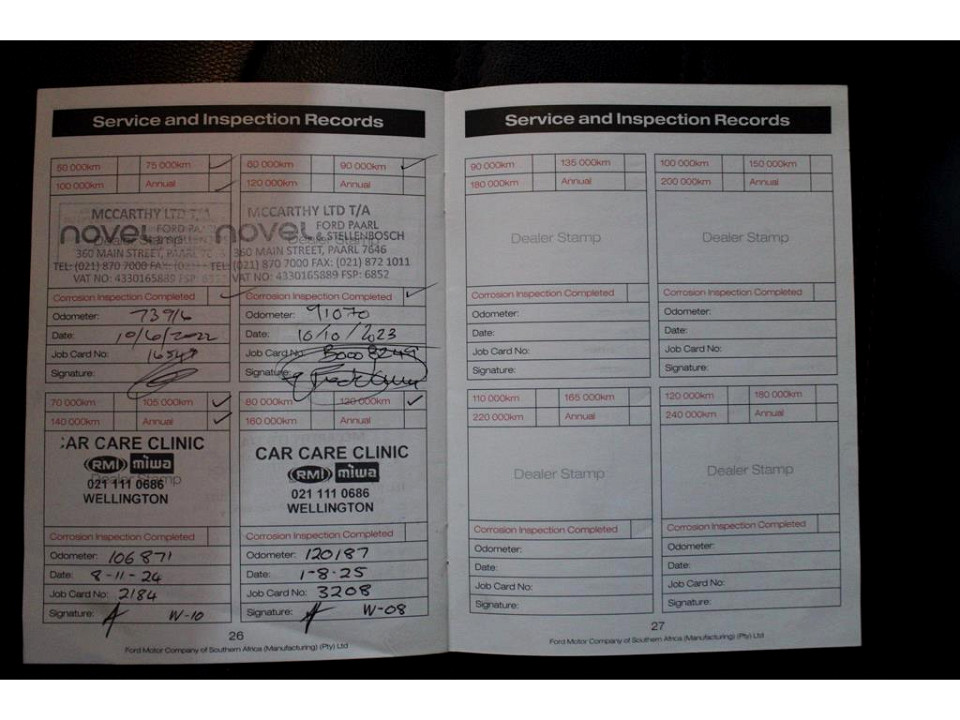 Service and Inspection Records
50 000km 75 000km
100 000km Annual
MCCARTHY LTD T/A
FORD PA
novel
Dealer Stamp
360 MAIN STREET, PAARL 7
TEL: (021) 870 7000 FAX: (021)
VAT NO: 4330165889 FSP: 6
Corrosion Inspection Completed
Odometer: 73916
Date: 10/6/2022
Job Card No: 16547
Signature:
60 000km 90 000km
120 000km Annual
MCCARTHY LTD T/A
FORD PAARL
novel & STELLENBOSCH
360 MAIN STREET, PAARL 7646
TEL: (021) 870 7000 FAX: (021) 872 1011
VAT NO: 4330165889 FSP: 6852
Corrosion Inspection Completed
Odometer: 91070
Date: 10/10/2023
Job Card No:
Signature:
70 000km 105 000km
140 000km Annual
CAR CARE CLINIC
RMI miwa
Dealer Stamp
021 111 0686
WELLINGTON
Corrosion Inspection Completed
Odometer: 106871
Date: 8-11-24
Job Card No: 2184
Signature: W-10
80 000km 120 000km
160 000km Annual
CAR CARE CLINIC
RMI miwa
021 111 0686
WELLINGTON
Corrosion Inspection Completed
Odometer: 120187
Date: 1-8-25
Job Card No: 3208
Signature: W-08
26
Ford Motor Company of Southern Africa (Manufacturing) (Pty) Ltd
Service and Inspection Records
90 000km 135 000km
180 000km Annual
Dealer Stamp
Corrosion Inspection Completed
Odometer:
Date:
Job Card No:
Signature:
100 000km 150 000km
200 000km Annual
Dealer Stamp
Corrosion Inspection Completed
Odometer:
Date:
Job Card No:
Signature:
110 000km 165 000km
220 000km Annual
Dealer Stamp
Corrosion Inspection Completed
Odometer:
Date:
Job Card No:
Signature:
120 000km 180 000km
240 000km Annual
Dealer Stamp
Corrosion Inspection Completed
Odometer:
Date:
Job Card No:
Signature:
27
Ford Motor Company of Southern Africa (Manufacturing) (Pty) Ltd